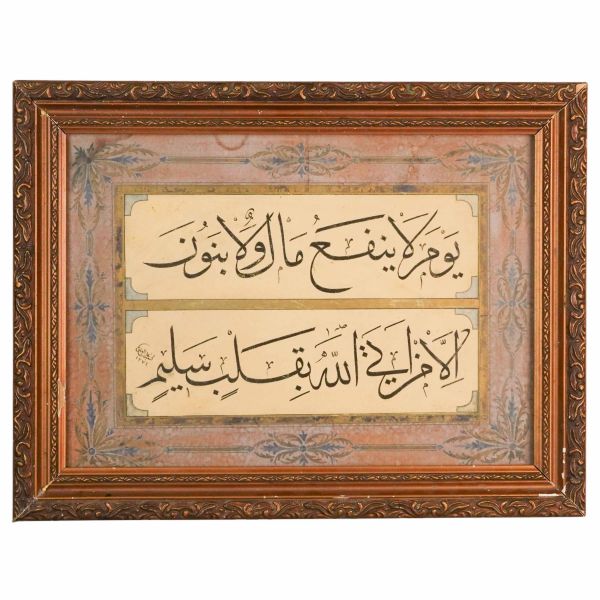 يَوْمَ لَا يَنفَعُ مَالٌ وَلَا بَنُونَ
إِلَّا مَنْ أَتَى اللَّهَ بِقَلْبٍ سَلِيمٍ